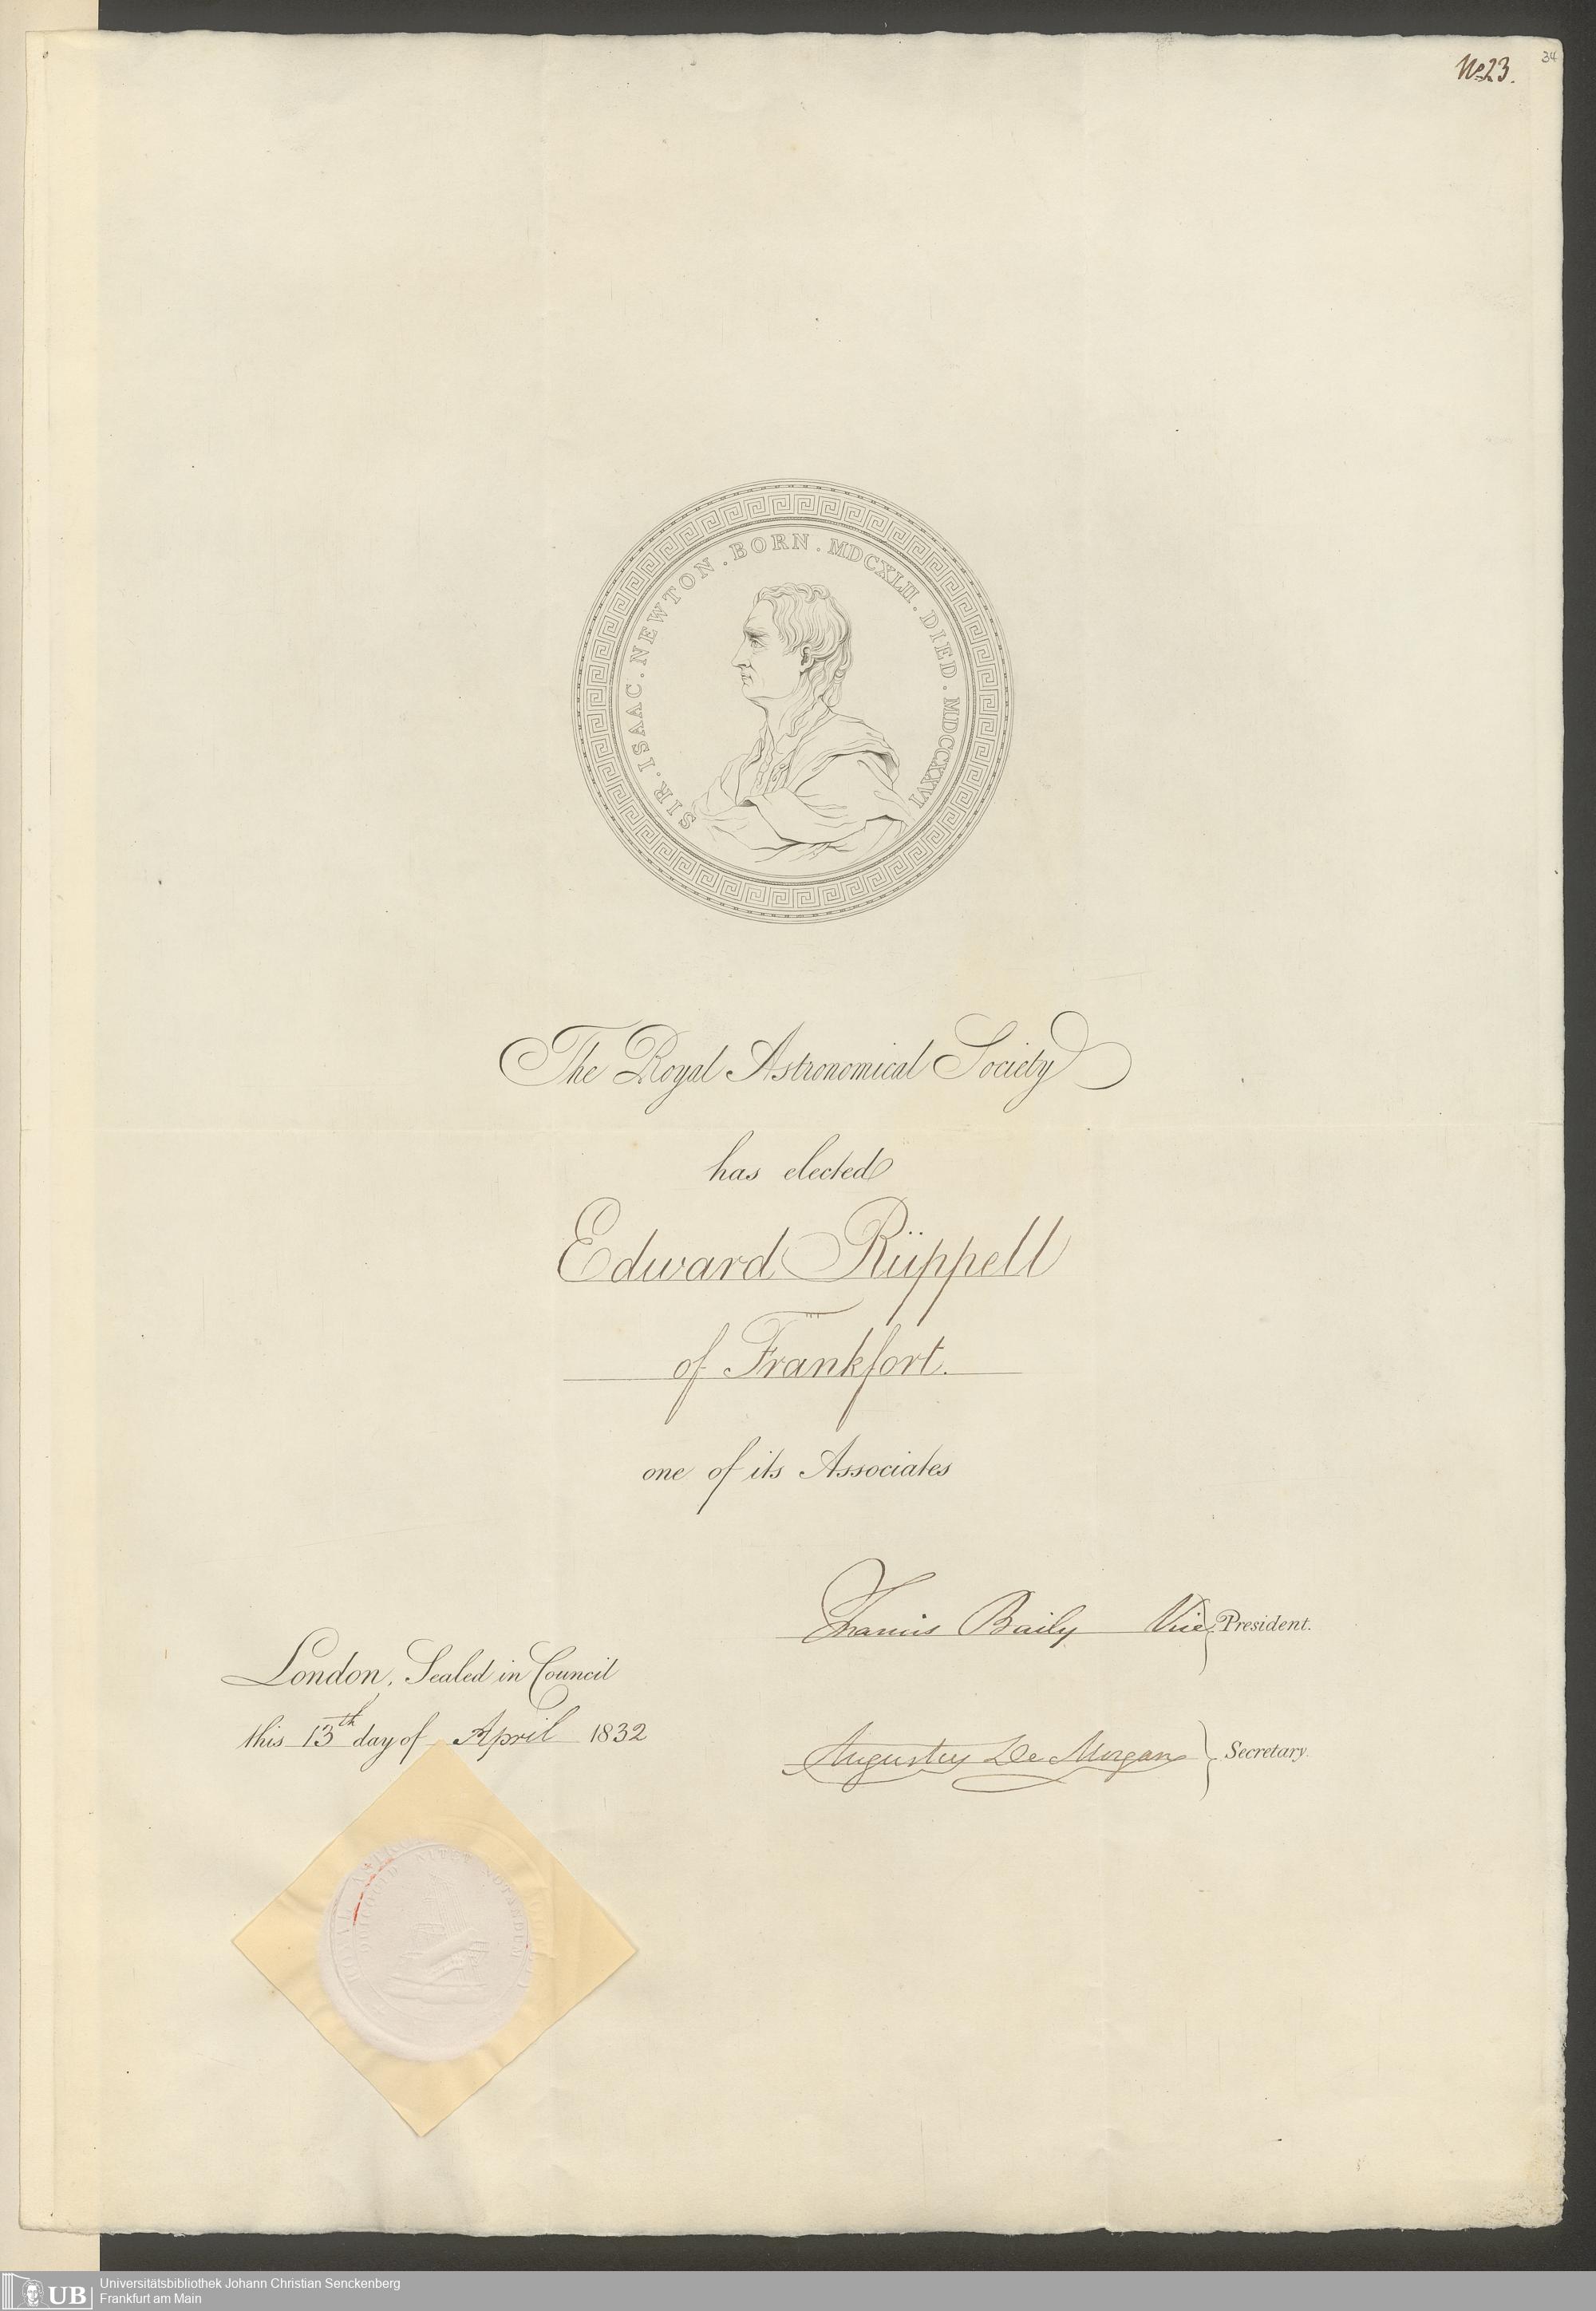 No 23.
34
SIR . ISAAC . NEWTON . BORN . MDCXLII . DIED . MDCCXXVI
The Royal Astronomical Society
has elected
Edward Rüppell
of Frankfort.
one of its Associates
Francis Baily Vice President.
London, Sealed in Council
this 13th day of April 1832
Augustus De Morgan Secretary.
QUICQUID NITET NOTANDUM
UB
Universitätsbibliothek Johann Christian Senckenberg
Frankfurt am Main